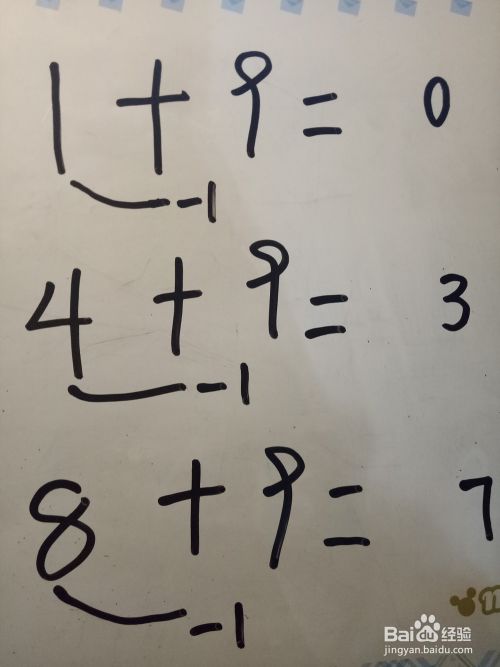 1 + 9 = 0
-1
4 + 9 = 3
-1
8 + 9 = 7
-1
Baidu 经验
jingyan.baidu.com